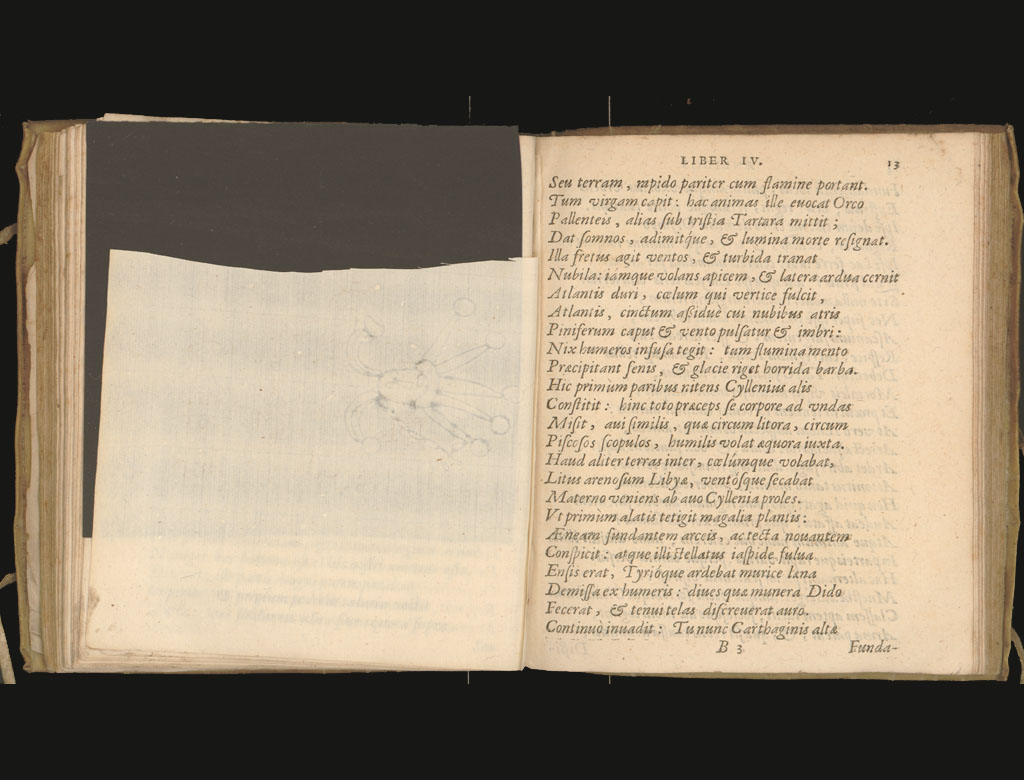 LIBER IV. 13
Seu terram, rapido pariter cum flamine portant.
Tum virgam capit: hac animas ille euocat Orco
Pallenteis, alias ſub triſtia Tartara mittit;
Dat ſomnos, adimitq́ue, & lumina morte reſignat.
Illa fretus agit ventos, & turbida tranat
Nubila: iámque volans apicem, & latera ardua cernit
Atlantis duri, cœlum qui vertice fulcit,
Atlantis, cinctum aßiduè cui nubibus atris
Piniferum caput & vento pulſatur & imbri:
Nix humeros infuſa tegit: tum flumina mento
Præcipitant ſenis, & glacie riget horrida barba.
Hic primùm paribus nitens Cyllenius alis
Conſtitit: hinc toto præceps ſe corpore ad vndas
Miſit, aui ſimilis, quæ circum litora, circum
Piſcoſos ſcopulos, humilis volat æquora iuxta.
Haud aliter terras inter, cœlúmque volabat,
Litus arenoſum Libyæ, ventóſque ſecabat
Materno veniens ab auo Cyllenia proles.
Vt primùm alatis tetigit magalia plantis:
Æneam fundantem arceis, ac tecta nouantem
Conſpicit: atque illi ſtellatus iaſpide fulua
Enſis erat, Tyrióque ardebat murice læna
Demiſſa ex humeris: diues quæ munera Dido
Fecerat, & tenui telas diſcreuerat auro.
Continuò inuadit: Tu nunc Carthaginis altæ
B 3 Funda-